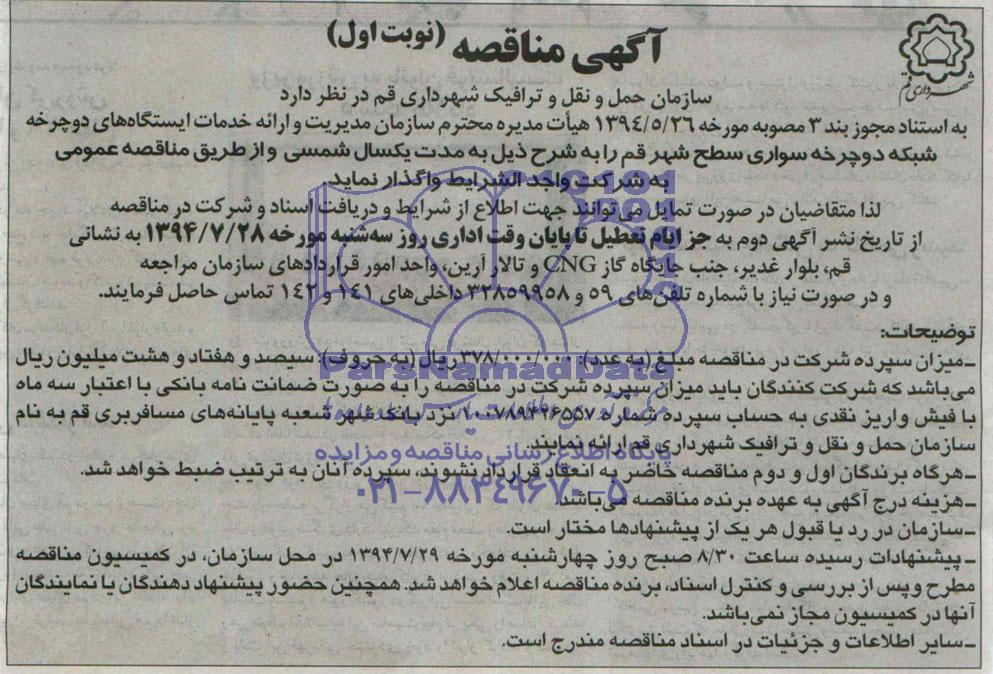 آگهی مناقصه (نوبت اول)
شهرداری قم
سازمان حمل و نقل و ترافیک شهرداری قم در نظر دارد
به استناد مجوز بند ۳ مصوبه مورخه ۱۳۹۴/۵/۲۶ هیأت مدیره محترم سازمان مدیریت و ارائه خدمات ایستگاه‌های دوچرخه
شبکه دوچرخه سواری سطح شهر قم را به شرح ذیل به مدت یکسال شمسی و از طریق مناقصه عمومی
به شرکت واجد الشرایط واگذار نماید.
لذا متقاضیان در صورت تمایل می‌توانند جهت اطلاع از شرایط و دریافت اسناد و شرکت در مناقصه
از تاریخ نشر آگهی دوم به جز ایام تعطیل تا پایان وقت اداری روز سه‌شنبه مورخه ۱۳۹۴/۷/۲۸ به نشانی
قم، بلوار غدیر، جنب جایگاه گاز CNG و تالار آرین، واحد امور قراردادهای سازمان مراجعه
و در صورت نیاز با شماره تلفن‌های ۵۹ و ۳۲۸۵۹۹۵۸ داخلی‌های ۱۴۱ و ۱۴۲ تماس حاصل فرمایند.
توضیحات:
ـ میزان سپرده شرکت در مناقصه مبلغ (به عدد): ۳۷۸/۰۰۰/۰۰۰ ریال (به حروف): سیصد و هفتاد و هشت میلیون ریال
می‌باشد که شرکت کنندگان باید میزان سپرده شرکت در مناقصه را به صورت ضمانت نامه بانکی با اعتبار سه ماه
یا فیش واریز نقدی به حساب سپرده شماره نزد بانک شهر شعبه پایانه‌های مسافربری قم به نام
سازمان حمل و نقل و ترافیک شهرداری قم ارائه نمایند.
ـ هرگاه برندگان اول و دوم مناقصه حاضر به انعقاد قرارداد نشوند، سپرده آنان به ترتیب ضبط خواهد شد.
ـ هزینه درج آگهی به عهده برنده مناقصه می‌باشد.
ـ سازمان در رد یا قبول هر یک از پیشنهادها مختار است.
ـ پیشنهادات رسیده ساعت ۸/۳۰ صبح روز چهارشنبه مورخه ۱۳۹۴/۷/۲۹ در محل سازمان، در کمیسیون مناقصه
مطرح و پس از بررسی و کنترل اسناد، برنده مناقصه اعلام خواهد شد. همچنین حضور پیشنهاد دهندگان یا نمایندگان
آنها در کمیسیون مجاز نمی‌باشد.
ـ سایر اطلاعات و جزئیات در اسناد مناقصه مندرج است.
ParsNamadData
پایگاه اطلاع رسانی مناقصه و مزایده
۰۲۱-۸۸۳۴۹۶۷۰-۵